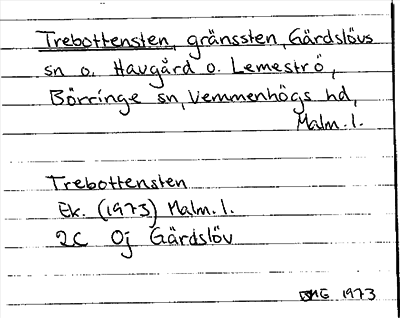 Trebottensten, gränssten, Gärdslövs
sn o. Havgård o. Lemeströ,
Börringe sn, Vemmenhögs hd,
Malm. l.
Trebottensten
Ek. (1973) Malm. l.
2C 0j Gärdslöv
1973